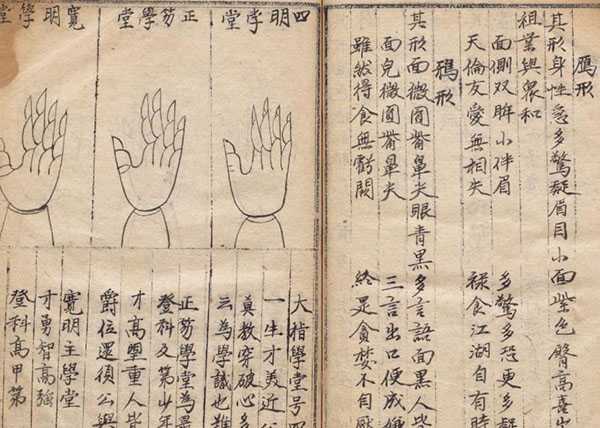 鴈形
其形身性急多驚疑眉目小面紫色臀高喜
祖業與衆和
面側双眸小伴眉 多驚多恐更多疑
天倫友愛無相失 祿食江湖自有時
鴉形
其形面微圓帶鼻尖眼青黑多言語面黑人皆
面皃微圓帶鼻尖 三言出口便成嫌
雖然得食無虧闕 終是貪婪不自厭
四明學堂
正竻學堂
寬明學堂
大指學堂号四
一生才美近
莫教穿破心多
云為學識也難
正竻學堂為
登科及第少年
才高朢重人皆
爵位還須公與
寬明主學堂
才勇智高強
登科高甲第